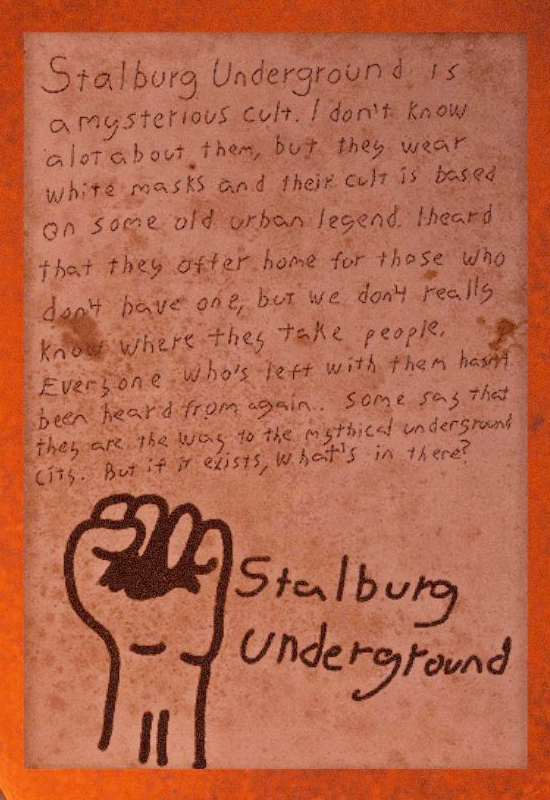 Stalburg Underground is
a mysterious cult. I don't know
alot about them, but they wear
white masks and their cult is based
on some old urban legend. I heard
that they offer home for those who
don't have one, but we don't really
know where they take people.
Everyone who's left with them hasn't
been heard from again.. Some say that
they are the way to the mythical underground
city. But if it exists, what's in there?
Stalburg
Underground